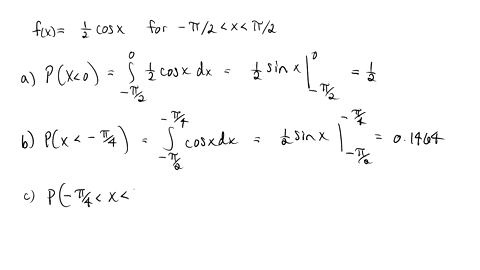 f(x) = 1/2 cos x for -π/2 < x < π/2
a) P(x<0) = ∫_{-π/2}^{0} 1/2 cos x dx = 1/2 sin x |_{-π/2}^{0} = 1/2
b) P(x < -π/4) = ∫_{-π/2}^{-π/4} cos x dx = 1/2 sin x |_{-π/2}^{-π/4} = 0.1464
c) P(-π/4 < x <